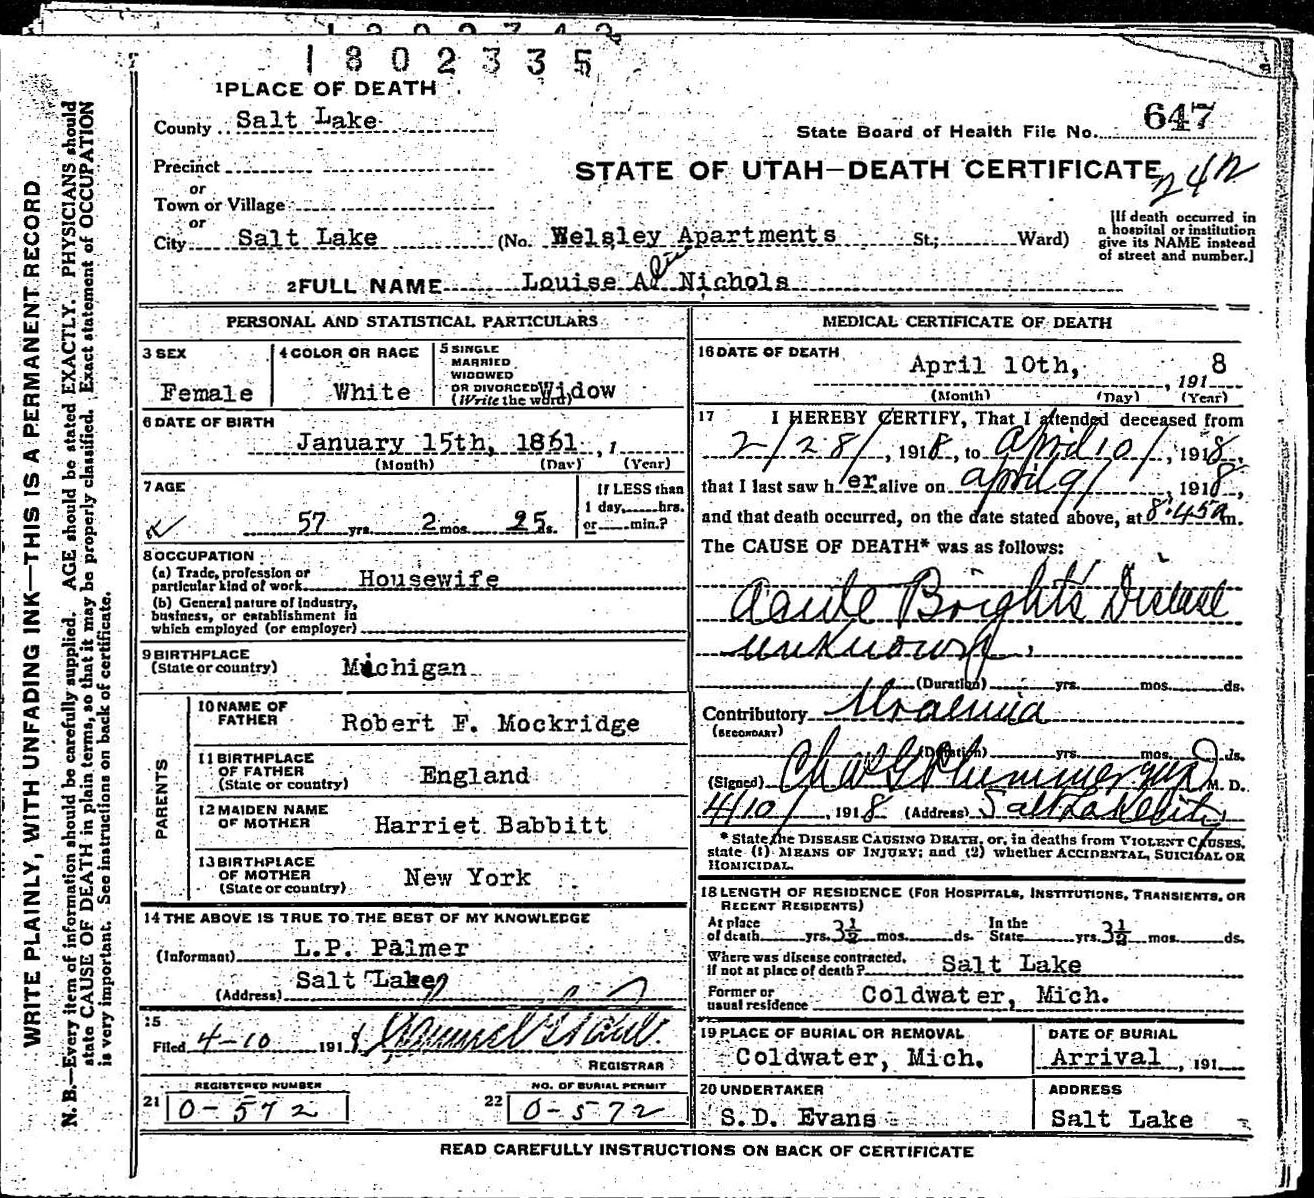 1802335
1 PLACE OF DEATH
County Salt Lake
State Board of Health File No. 647
Precinct
STATE OF UTAH—DEATH CERTIFICATE
242
or
Town or Village
or
City Salt Lake (No. Welsley Apartments St.; Ward)
[If death occurred in
a hospital or institution
give its NAME instead
of street and number.]
2 FULL NAME Louise A. Nichols
WRITE PLAINLY, WITH UNFADING INK—THIS IS A PERMANENT RECORD
N. B.—Every item of information should be carefully supplied. AGE should be stated EXACTLY. PHYSICIANS should
state CAUSE OF DEATH in plain terms, so that it may be properly classified. Exact statement of OCCUPATION
is very important. See instructions on back of certificate.
PERSONAL AND STATISTICAL PARTICULARS
3 SEX
Female
4 COLOR OR RACE
White
5 SINGLE
MARRIED
WIDOWED
OR DIVORCED Widow
(Write the word)
6 DATE OF BIRTH
January 15th, 1861, 1
(Month) (Day) (Year)
7 AGE
57 yrs. 2 mos. 25 ds.
If LESS than
1 day, hrs.
or min.?
8 OCCUPATION
(a) Trade, profession or
particular kind of work Housewife
(b) General nature of industry,
business, or establishment in
which employed (or employer)
9 BIRTHPLACE
(State or country) Michigan
PARENTS
10 NAME OF
FATHER Robert F. Mockridge
11 BIRTHPLACE
OF FATHER
(State or country) England
12 MAIDEN NAME
OF MOTHER Harriet Babbitt
13 BIRTHPLACE
OF MOTHER
(State or country) New York
14 THE ABOVE IS TRUE TO THE BEST OF MY KNOWLEDGE
(Informant) L.P. Palmer
Salt Lake
(Address)
15
Filed 4-10 1918
REGISTRAR
REGISTERED NUMBER
21 0-572
NO. OF BURIAL PERMIT
22 0-572
MEDICAL CERTIFICATE OF DEATH
16 DATE OF DEATH
April 10th, , 1918
(Month) (Day) (Year)
17 I HEREBY CERTIFY, That I attended deceased from
2/28/, 1918, to April 10/, 1918,
that I last saw her alive on April 9/, 1918,
and that death occurred, on the date stated above, at 8:45 a m.
The CAUSE OF DEATH* was as follows:
Acute Brights Disease
unknown.
(Duration) yrs. mos. ds.
Contributory Uraemia
(SECONDARY)
(Duration) yrs. mos. ds.
(Signed) Chas G Plummer M. D.
4/10/, 1918 (Address) Salt Lake City
* State the DISEASE CAUSING DEATH, or, in deaths from VIOLENT CAUSES,
state (1) MEANS OF INJURY; and (2) whether ACCIDENTAL, SUICIDAL OR
HOMICIDAL.
18 LENGTH OF RESIDENCE (FOR HOSPITALS, INSTITUTIONS, TRANSIENTS, OR
RECENT RESIDENTS)
At place
of death yrs. 3½ mos. ds.
In the
State yrs. 3½ mos. ds.
Where was disease contracted,
if not at place of death? Salt Lake
Former or
usual residence Coldwater, Mich.
19 PLACE OF BURIAL OR REMOVAL
Coldwater, Mich.
DATE OF BURIAL
Arrival, 191
20 UNDERTAKER
S.D. Evans
ADDRESS
Salt Lake
READ CAREFULLY INSTRUCTIONS ON BACK OF CERTIFICATE